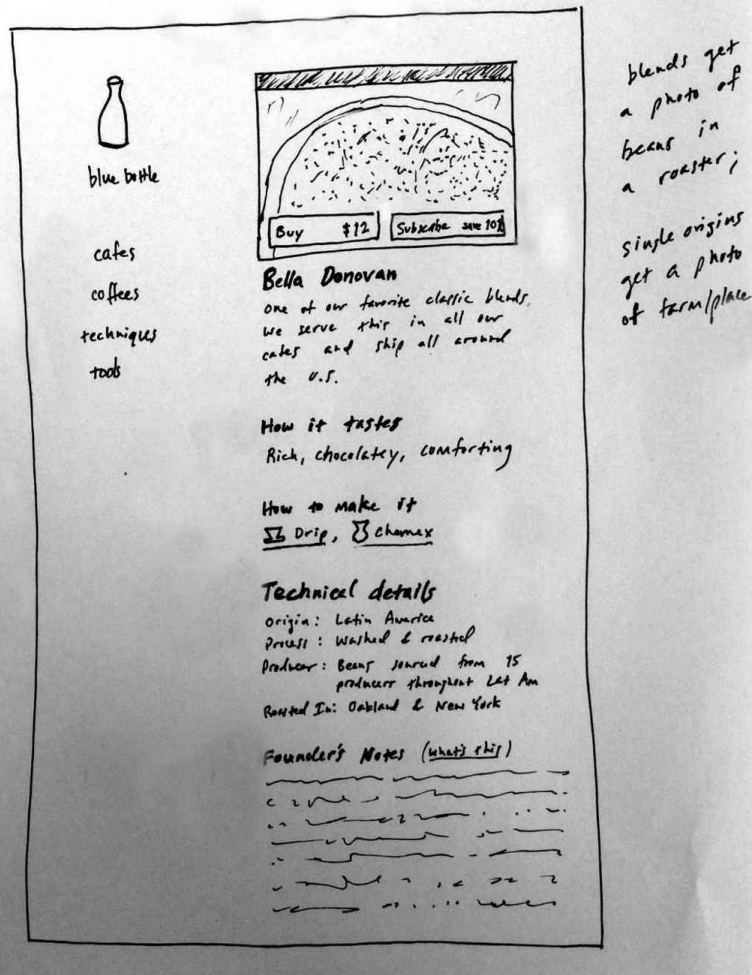 blue bottle
cafes
coffees
techniques
tools
Buy $12
Subscribe save 10%
Bella Donovan
One of our favorite classic blends.
We serve this in all our
cafes and ship all around
the U.S.
How it tastes
Rich, chocolatey, comforting
How to make it
Drip, Chemex
Technical details
Origin: Latin America
Process: Washed & roasted
Producer: Beans sourced from 15
producers throughout Lat Am
Roasted In: Oakland & New York
Founder's Notes (what's this)
blends get
a photo of
beans in
a roaster;
single origins
get a photo
of farm/place